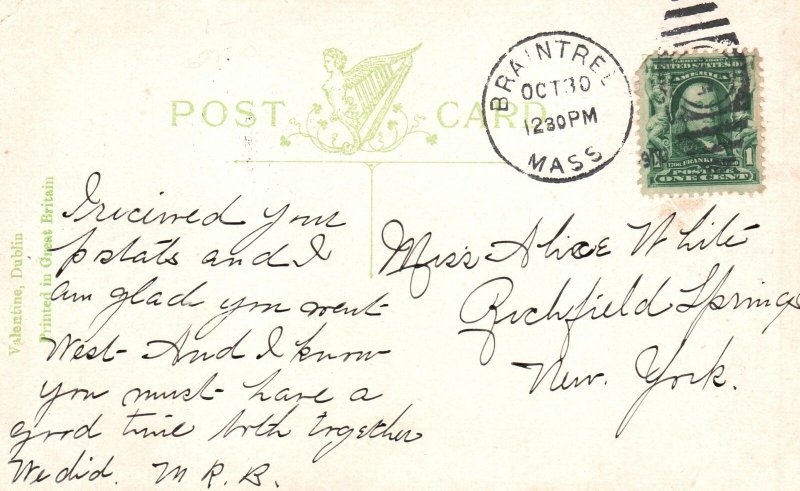 POST CARD
BRAINTREE
OCT 30
12 30 PM
MASS
SERIES 1902
UNITED STATES OF
AMERICA
FRANKLIN
1
POSTAGE
ONE CENT
Valentine, Dublin
Printed in Great Britain
I recieved your
postals and I
am glad you went
West- And I know
you must have a
good time both together
We did. M R. B.
Miss Alice White
Richfield Springs
New. York.